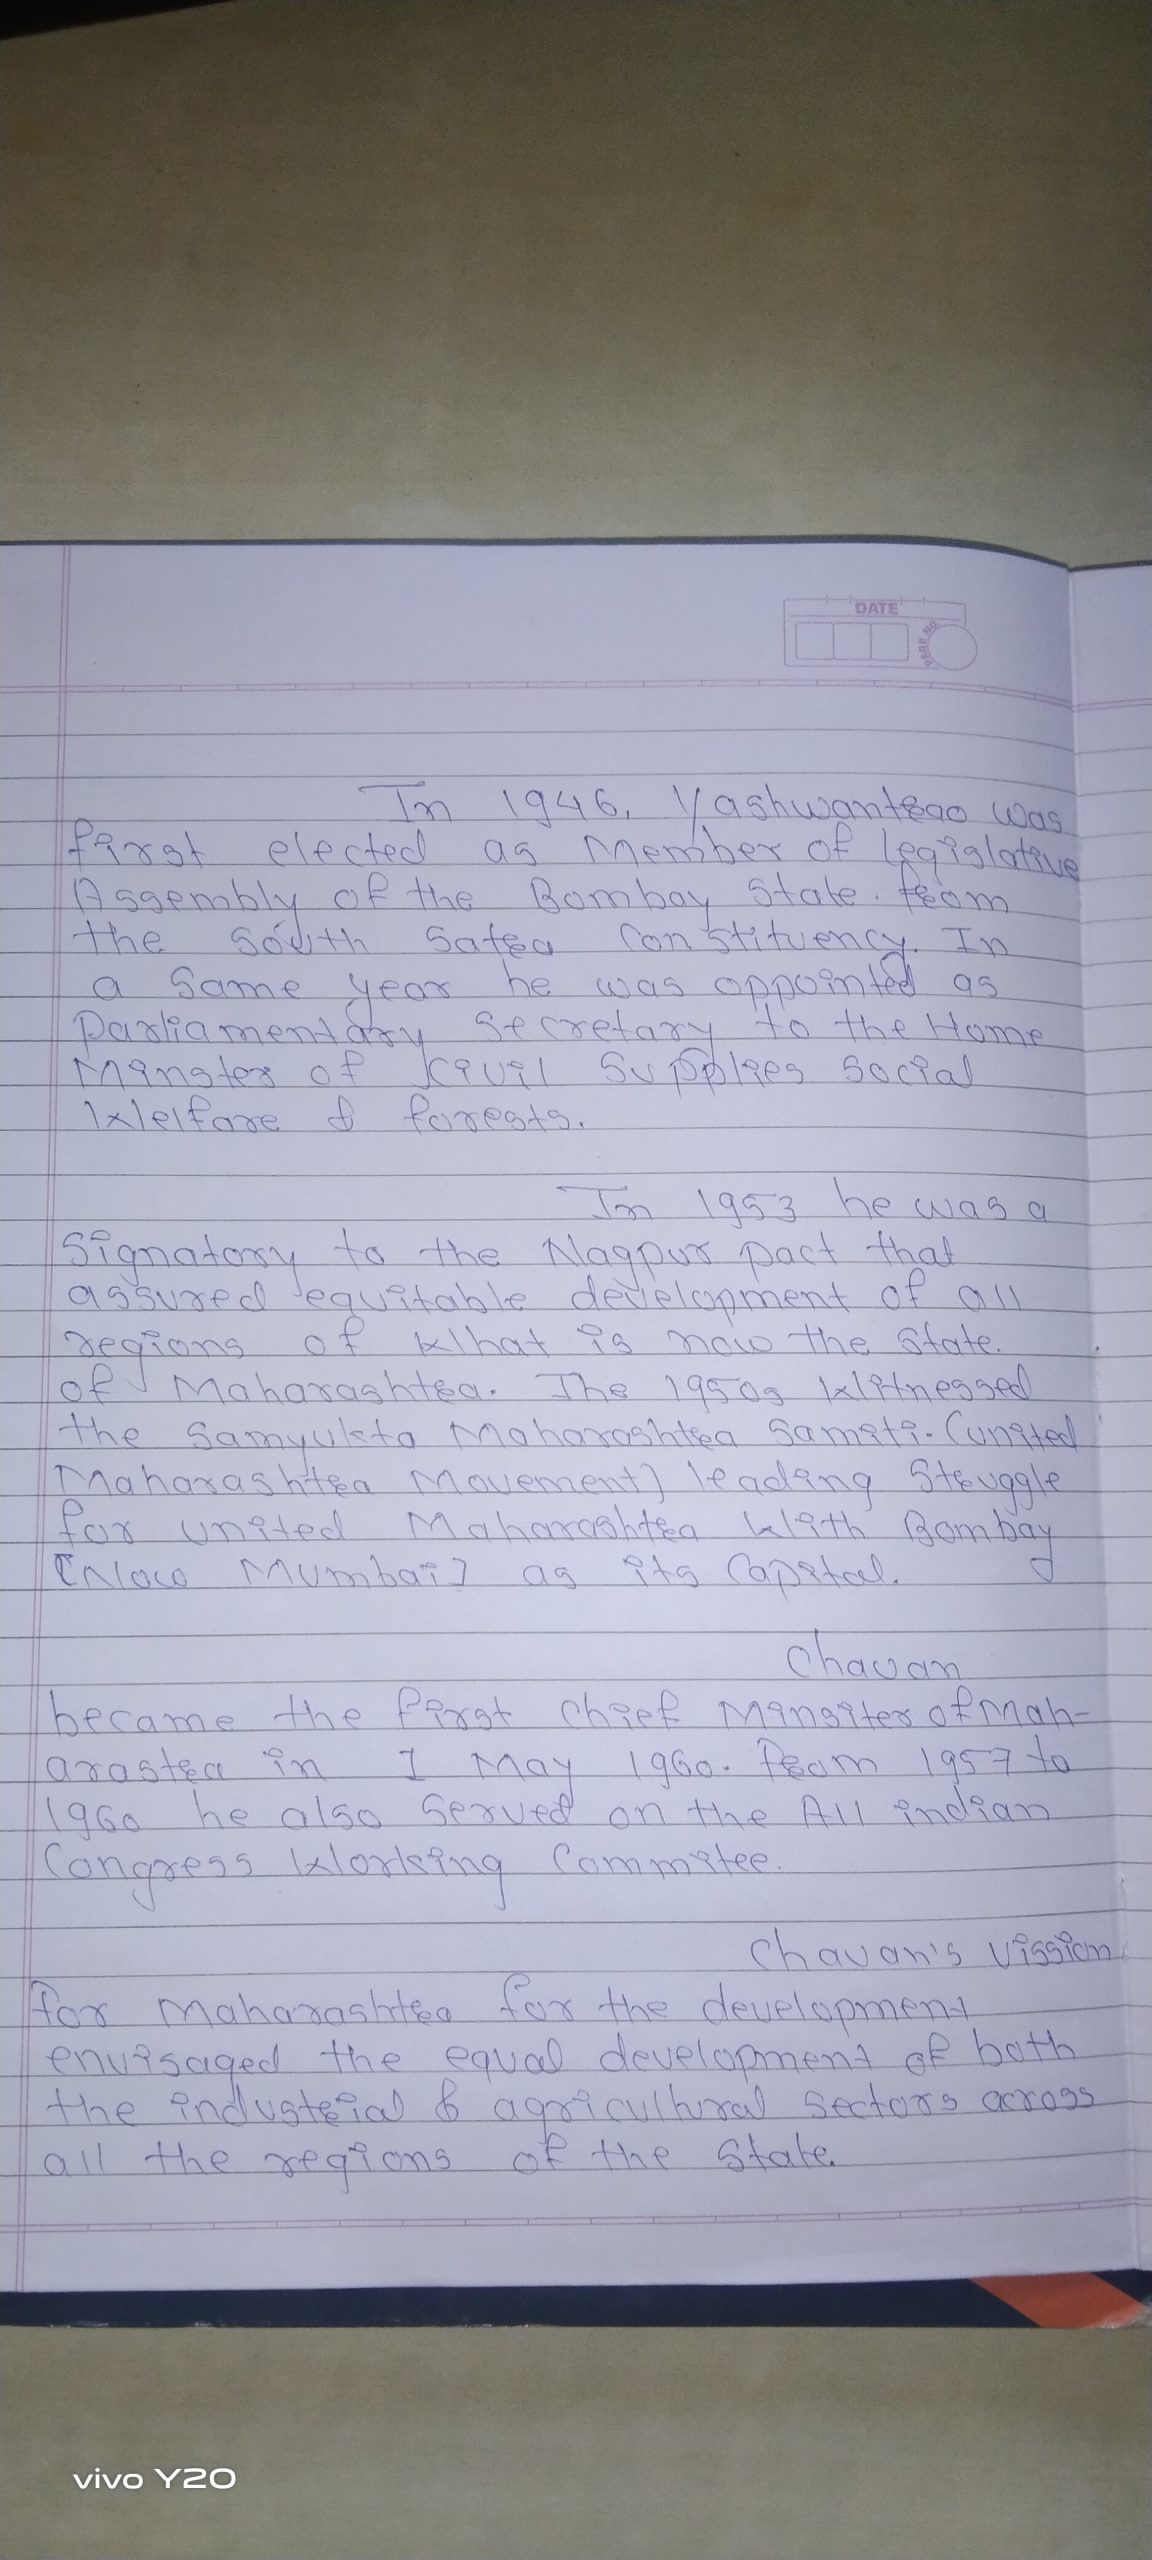 DATE
PAGE NO.
In 1946, Yashwantrao was
first elected as Member of legislative
Assembly of the Bombay State. from
the south Satra Constituency. In
a same year he was appointed as
Parliamentary Secretary to the Home
Minster of civil Supplies Social
Welfare & forests.
In 1953 he was a
Signatory to the Nagpur pact that
assured equitable development of all
regions of What is now the State.
of Maharashtra. The 1950s Witnessed
the Samyukta Maharashtra Samiti. (united
Maharashtra Movement] leading Struggle
for united Maharashtra With Bombay
[Now Mumbai] as its Capital.
Chavan
became the first Chief Minsiter of Mah-
arastra in 1 May 1960. From 1957 to
1960 he also Served on the All indian
Congress Working Commitee.
Chavan's vission
for Maharashtra for the development
envisaged the equal development of both
the industrial & agricultural Sectors across
all the regions of the State.
vivo Y20